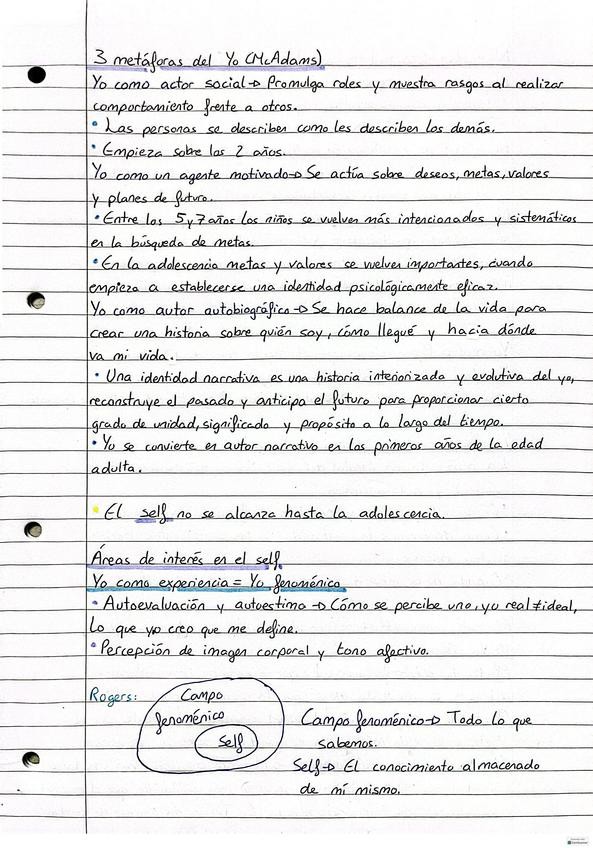 3 metáforas del Yo (McAdams)
Yo como actor social → Promulga roles y muestra rasgos al realizar
comportamiento frente a otros.
• Las personas se describen como les describen los demás.
• Empieza sobre los 2 años.
Yo como un agente motivado → Se actúa sobre deseos, metas, valores
y planes de futuro.
• Entre los 5 y 7 años los niños se vuelven más intencionados y sistemáticos
en la búsqueda de metas.
• En la adolescencia metas y valores se vuelven importantes, cuando
empieza a establecerse una identidad psicológicamente eficaz.
Yo como autor autobiográfico → Se hace balance de la vida para
crear una historia sobre quién soy, cómo llegué y hacia dónde
va mi vida.
• Una identidad narrativa es una historia interiorizada y evolutiva del yo,
reconstruye el pasado y anticipa el futuro para proporcionar cierto
grado de unidad, significado y propósito a lo largo del tiempo.
• Yo se convierte en autor narrativo en los primeros años de la edad
adulta.
• El self no se alcanza hasta la adolescencia.
Áreas de interés en el self
Yo como experiencia = Yo fenoménico
• Autoevaluación y autoestima → Cómo se percibe uno, yo real ≠ ideal,
lo que yo creo que me define.
• Percepción de imagen corporal y tono afectivo.
Rogers:
Campo
fenoménico
Self
Campo fenoménico → Todo lo que
sabemos.
Self → El conocimiento almacenado
de mí mismo.